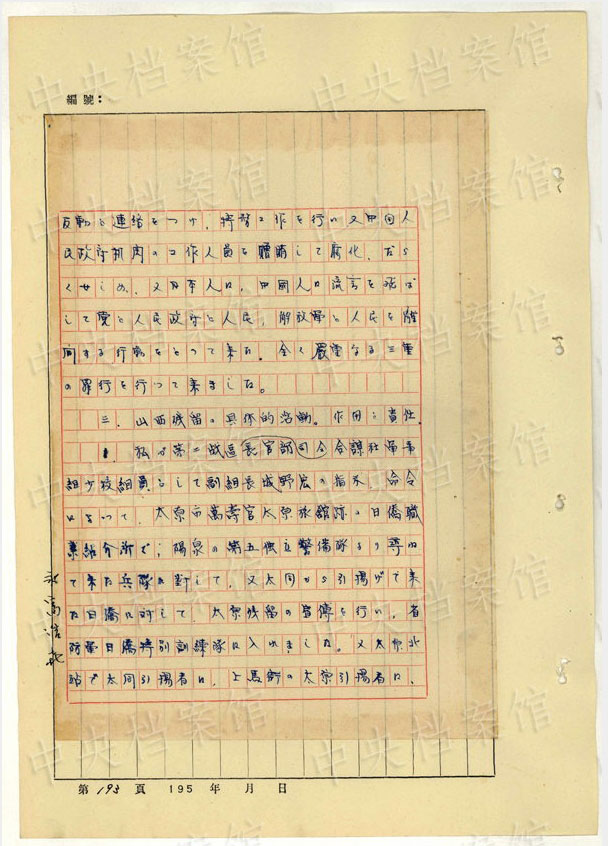 編號：
反動と連絡をつけ、特務工作を行い又中国人
民政府机内の工作人員を贈賄して腐化、だら
くせしめ、又日本人に、中国人に流言を飛ば
して党と人民政府と人民、解放軍と人民を離
間する行動をとつて来た。全く厳重なる三重
の罪行を行つて来ました。
三、山西残留の具体的活動。作用と責任。
1. 私は第二战區長官部司令
組少校組員として副組長城野宏の指示、命令
によつて、太原市萬壽宮太原旅館隊の日僑職
業紹介所で、陽泉の第五独立警備隊より尋ね
て来た兵隊に対して、又大同から引揚げて来
た日僑に対して、太原残留の宣傳を行い、省
防軍日僑特別訓練隊に入れました。又太原北
站で大同引揚者に、上馬街の太原引揚者に、
第193頁 195 年 月 日
中央档案馆